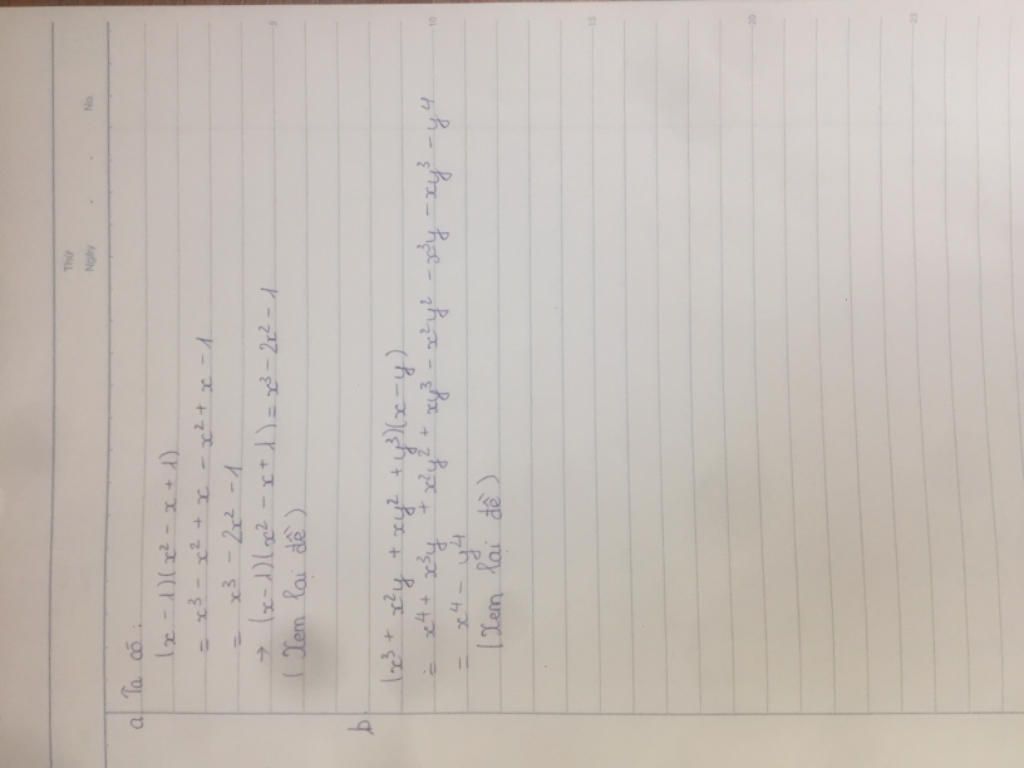 Thứ
Ngày No.
a Ta có :
(x - 1)(x² - x + 1)
= x³ - x² + x - x² + x - 1
= x³ - 2x² - 1
→ (x-1)(x² - x + 1) = x³ - 2x² - 1
(Xem lại đề)
b
(x³ + x²y + xy² + y³)(x - y)
= x⁴ + x³y + x²y² + xy³ - x²y² - x³y - xy³ - y⁴
= x⁴ - y⁴
(Xem lại đề)
5
10
15
20
25